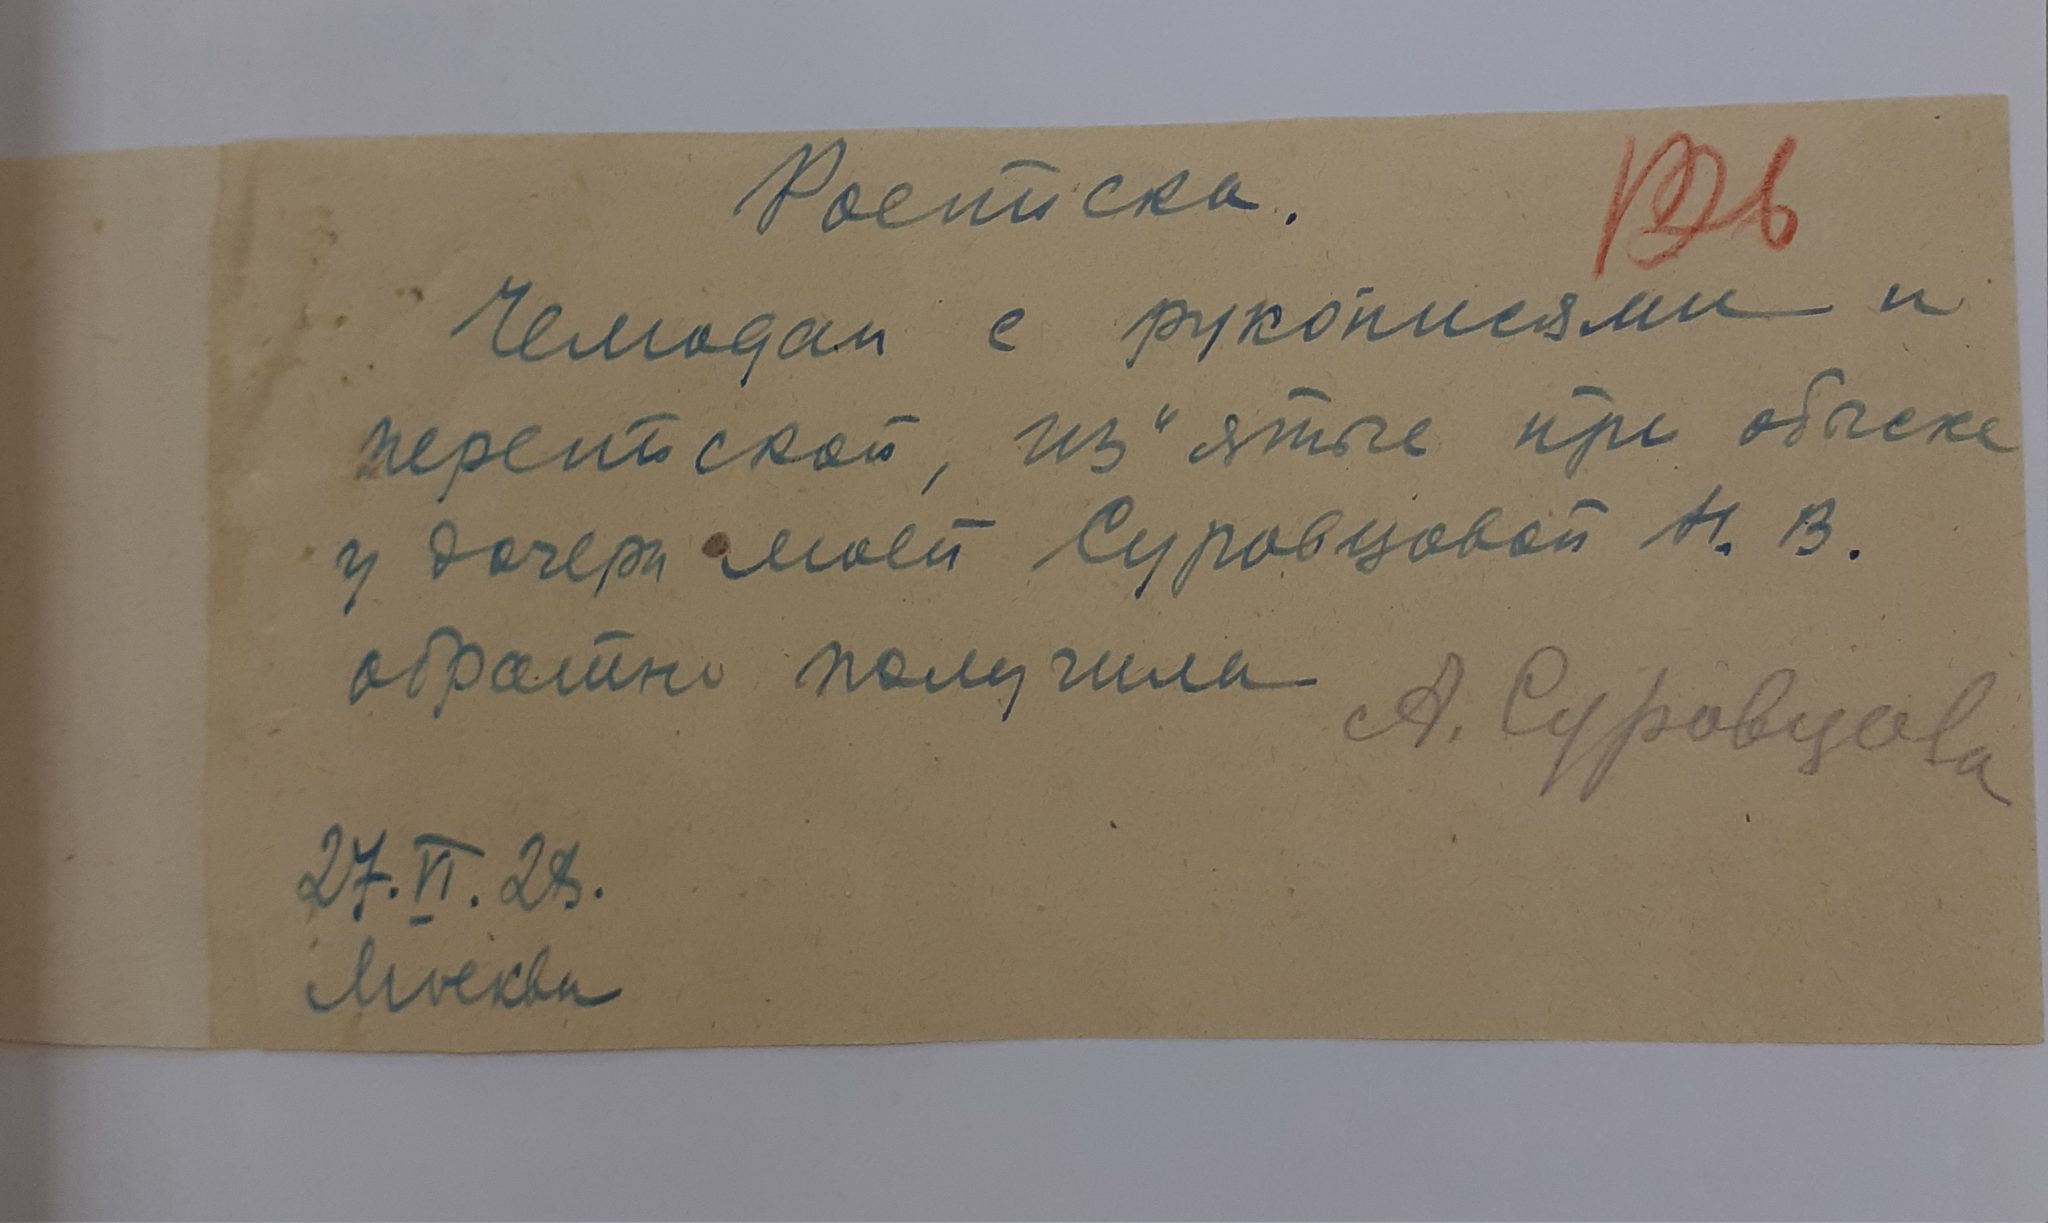 Росписка.
Чемодан с рукописями и
перепиской, из"ятые при обыске
у дочери моей Суровцовой Н. В.
обратно получила А. Суровцова
27. VI. 28.
Москва